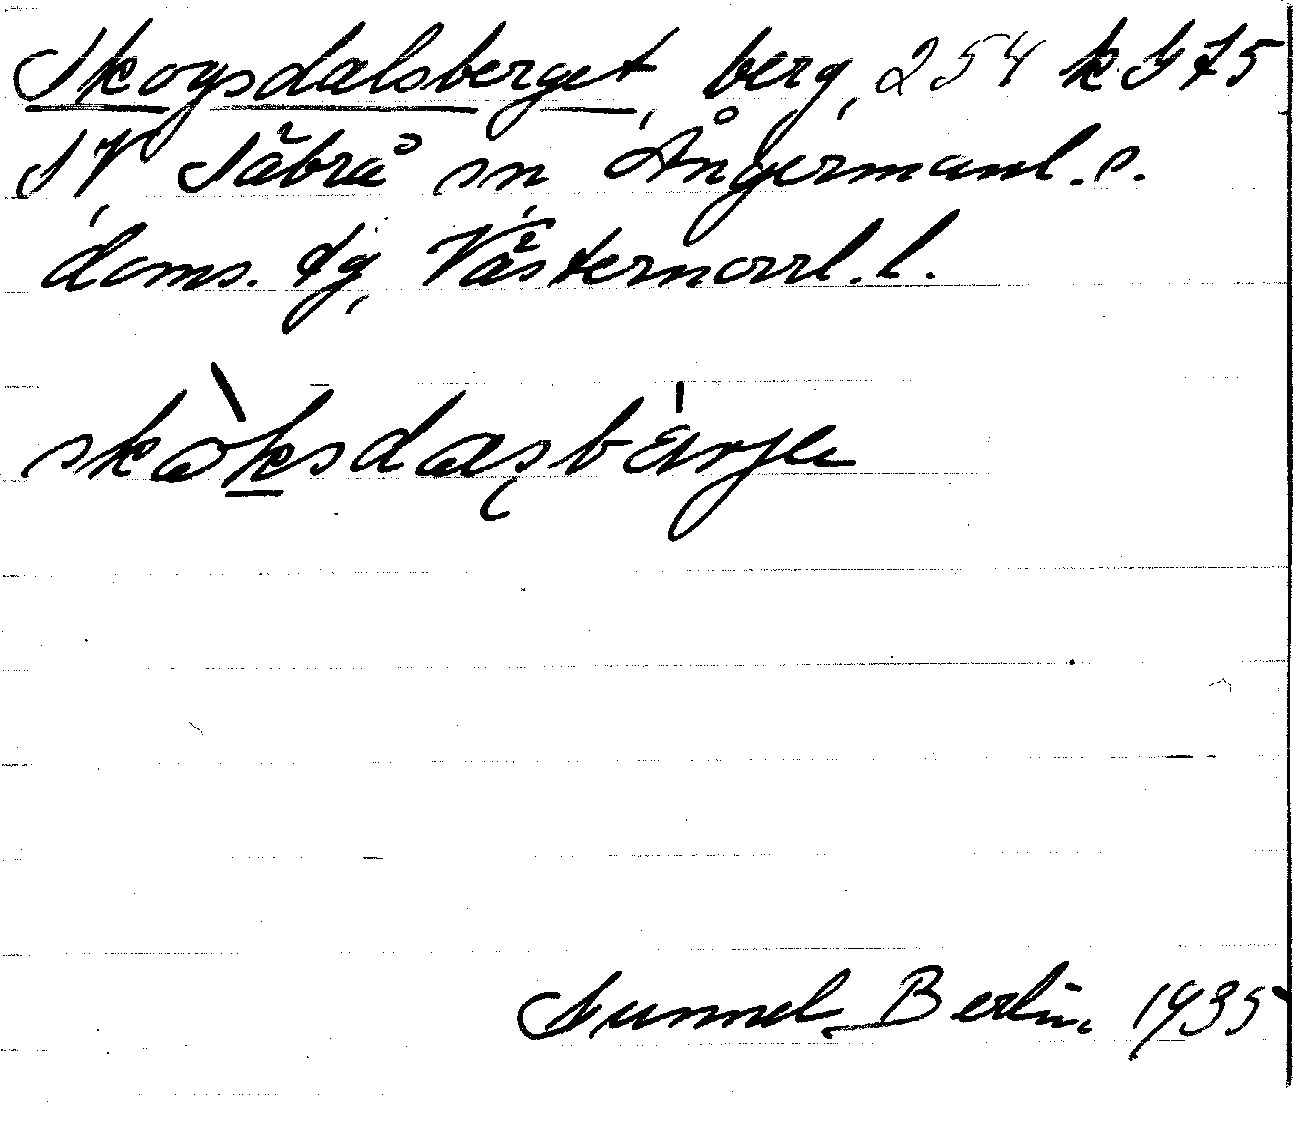 Skogsdalsberget, berg, 254 k G 75
SV, Säbrå sn, Ångermanl. s.
doms. tg, Västernorrl. l.
skòksdaʂbä́rje
Berlin 1935